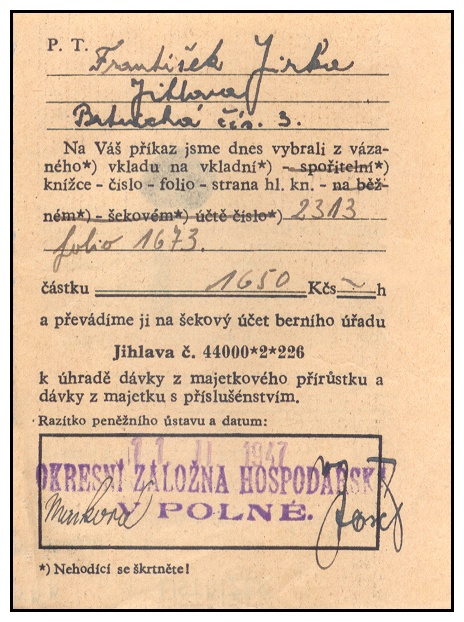 P. T. František Jirka
Jihlava
Brtnická čís. 3.
Na Váš příkaz jsme dnes vybrali z váza-
ného*) vkladu na vkladní*) - spořitelní*)
knížce - číslo - folio - strana hl. kn. - na běž-
ném*) - šekovém*) účtě číslo*) 2313
folio 1673.
částku 1650 Kčs — h
a převádíme ji na šekový účet berního úřadu
Jihlava č. 44000*2*226
k úhradě dávky z majetkového přírůstku a
dávky z majetku s příslušenstvím.
Razítko peněžního ústavu a datum:
11 II 1947
OKRESNÍ ZÁLOŽNA HOSPODÁŘSKÁ
V POLNÉ.
*) Nehodící se škrtněte!